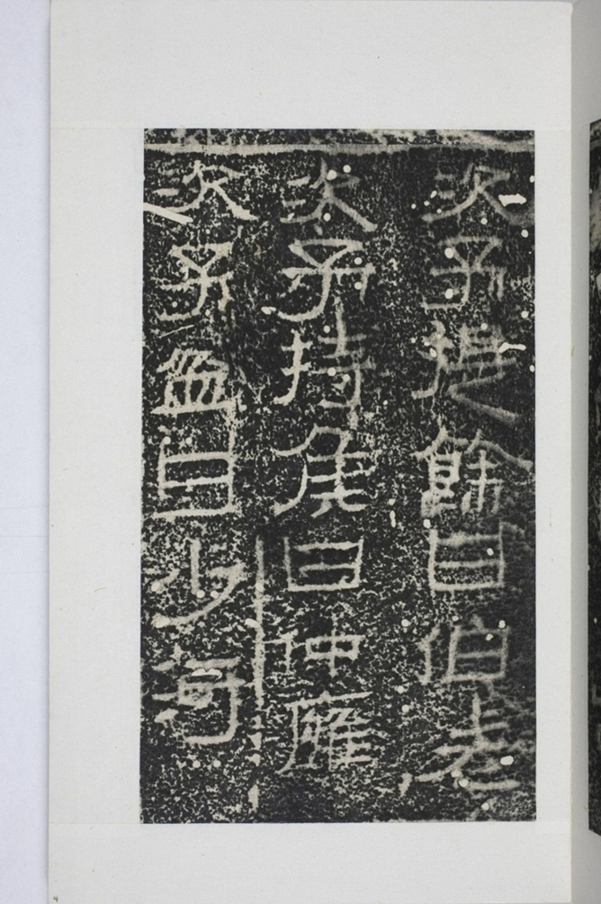 次子提餘曰伯老
次子持侯曰仲廱
次子盆曰少河